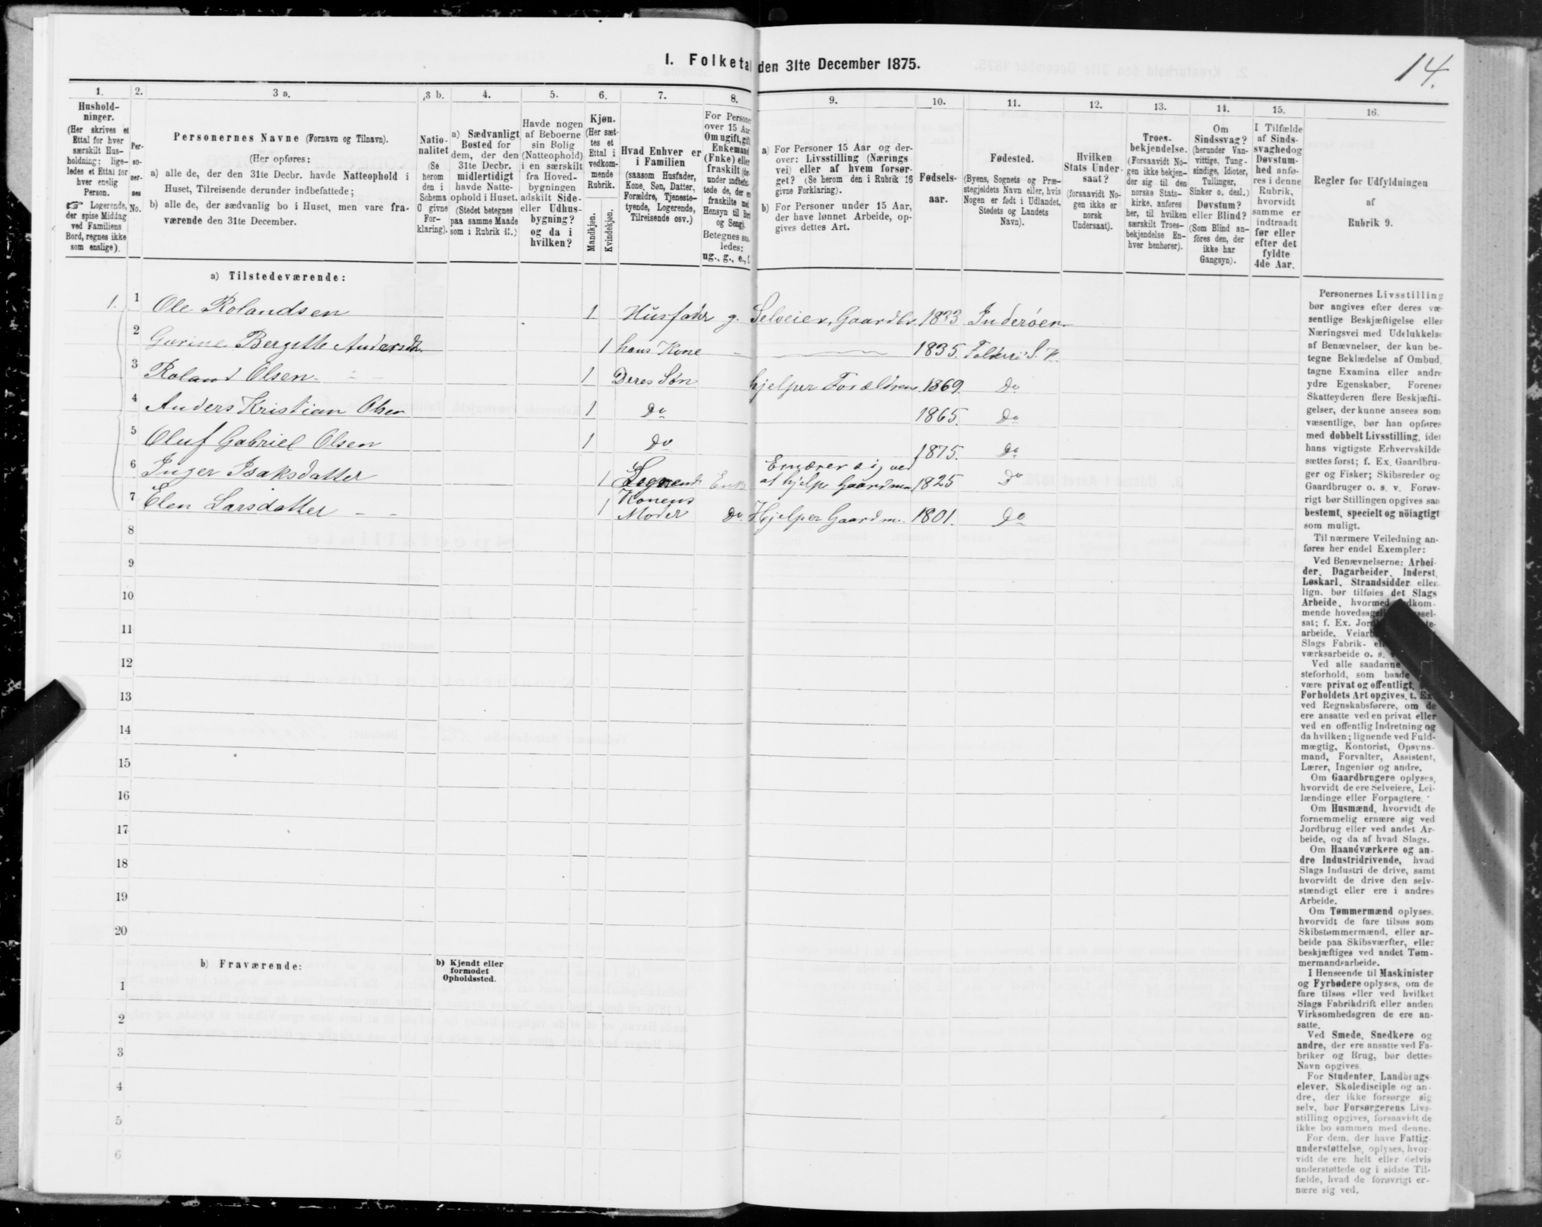 I. Folketal den 31te December 1875.
14.
1.
Husholdninger.
(Her skrives et
Ettal for hver
særskilt Husholdning;
ligeledes et Ettal for
hver enslig
Person.
Logerende,
der spise Middag
ved Familiens
Bord, regnes ikke
som enslige).
2.
Personernes
No.
3 a.
Personernes Navne (Fornavn og Tilnavn).
(Her opføres:
a) alle de, der den 31te Decbr. havde Natteophold i
Huset, Tilreisende derunder indbefattede;
b) alle de, der sædvanlig bo i Huset, men vare fraværende
den 31te December.
3 b.
Nationalitet
(Se
herom
den i
Schema
O givne
Forklaring).
4.
a) Sædvanligt
Bosted for
dem, der den
31te Decbr.
midlertidigt
havde Natteophold
i Huset.
(Stedet betegnes
paa samme Maade
som i Rubrik 11.)
5.
Havde nogen
af Beboerne
sin Bolig
(Natteophold)
i en særskilt
fra Hovedbygningen
adskilt Side-
eller Udhusbygning?
og da i
hvilken?
6.
Kjøn.
(Her sættes
et
Ettal i
vedkommende
Rubrik.
Mandkjøn.
Kvindekjøn.
7.
Hvad Enhver er
i Familien
(saasom Husfader,
Kone, Søn, Datter,
Forældre, Tjenestetyende,
Logerende,
Tilreisende osv.)
8.
For Personer
over 15 Aar
Om ugift, gift,
Enkemand
(Enke) eller
fraskilt
Betegnes saaledes:
ug., g., e., f.
9.
a) For Personer 15 Aar og derover:
Livsstilling (Næringsvei)
eller af hvem forsørget?
(Se herom den i Rubrik 16
givne Forklaring).
b) For Personer under 15 Aar,
der have lønnet Arbeide, opgives
dettes Art.
10.
Fødselsaar.
11.
Fødested.
(Byens, Sognets og Præstegjeldets
Navn eller, hvis
Nogen er født i Udlandet,
Stedets og Landets
Navn).
12.
Hvilken
Stats Undersaat?
(forsaavidt Nogen
ikke er
norsk
Undersaat).
13.
Troesbekjendelse.
(Forsaavidt Nogen
ikke bekjender
sig til den
norske Statskirke,
anføres
her, til hvilken
særskilt Troesbekjendelse
Enhver
henhører).
14.
Om
Sindssvag?
(herunder Vanvittige,
Tungsindige,
Idioter,
Tullinger,
Sinker o. desl.)
Døvstum?
eller Blind?
(Som Blind anføres
den, der
ikke har
Gangsyn).
15.
I Tilfælde
af Sindssvaghed
og
Døvstumhed
anføres
i denne
Rubrik,
hvorvidt
samme er
indtraadt
før eller
efter det
fyldte
4de Aar.
16.
Regler for Udfyldningen
af
Rubrik 9.
a) Tilstedeværende:
1. 1 Ole Rolandsen 1 Husfader g. Selveier, Gaardbr. 1833 Inderøen
2 Gurine Bergitte Andersdtr 1 hans Kone 1835.
3 Roland Olsen 1 Deres Søn hjelper Forældrene 1869. Do
4 Anders Kristian Olsen 1 Do 1865. Do
5 Oluf Gabriel Olsen 1 Do 1875. Do
6 Inger Isaksdatter 1 Enke Ernærer sig ved
at hjelpe Gaardmen 1825 Do
7 Elen Larsdatter 1 Konens
Moder Do Hjelper Gaardm. 1801. Do
8
9
10
11
12
13
14
15
16
17
18
19
20
b) Fraværende:
b) Kjendt eller
formodet
Opholdssted.
1
2
3
4
5
6
Personernes Livsstilling
bør angives efter deres væsentlige
Beskjæftigelse eller
Næringsvei med Udelukkelse
af Benævnelser, der kun betegne
Beklædelse af Ombud,
tagne Examina eller andre
ydre Egenskaber. Forener
Skatteyderen flere Beskjæftigelser,
der kunne ansees som
væsentlige, bør han opføres
med dobbelt Livsstilling, idet
hans vigtigste Erhvervskilde
sættes først; f. Ex. Gaardbruger
og Fisker; Skibsreder og
Gaardbruger o. s. v. Forøvrigt
bør Stillingen opgives saa
bestemt, specielt og nöiagtigt
som muligt.
Til nærmere Veiledning anføres
her endel Exempler:
Ved Benævnelserne: Arbeider,
Dagarbeider, Inderst,
Løskarl, Strandsidder eller
lign. bør tilføies det Slags
Arbeide,
Slags Fabrik-
værksarbeide o. s. v.
Ved alle saadanne
være privat og offentligt,
Forholdets Art opgives, f. Ex.
ved Regnskabsførere, om de
ere ansatte ved en privat eller
ved en offentlig Indretning og
da hvilken; lignende ved Fuldmægtig,
Kontorist, Opsynsmand,
Forvalter, Assistent,
Lærer, Ingeniør og andre.
Om Gaardbrugere oplyses,
hvorvidt de ere Selveiere, Leilændinge
eller Forpagtere.
Om Husmænd, hvorvidt de
fornemmelig ernære sig ved
Jordbrug eller ved andet Arbeide,
og da af hvad Slags.
Om Haandværkere og andre
Industridrivende, hvad
Slags Industri de drive, samt
hvorvidt de drive den selvstændigt
eller ere i andres
Arbeide.
Om Tømmermænd oplyses,
hvorvidt de fare tilsøs som
Skibstømmermænd, eller arbeide
paa Skibsværfter, eller
beskjæftiges ved andet Tømmermandsarbeide.
I Henseende til Maskinister
og Fyrbødere oplyses, om de
fare tilsøs eller ved hvilket
Slags Fabrikdrift eller anden
Virksomhedsgren de ere ansatte.
Ved Smede, Snedkere og
andre, der ere ansatte ved Fabriker
og Brug, bør dettes
Navn opgives.
For Studenter, Landbrugselever,
Skoledisciple og andre,
der ikke forsørge sig
selv, bør Forsørgerens Livsstilling
opgives, forsaavidt de
ikke bo sammen med denne.
For dem, der have Fattigunderstøttelse,
oplyses, hvorvidt
de ere helt eller delvis
understøttede og i sidste Tilfælde,
hvad de forøvrigt ernære
sig ved.